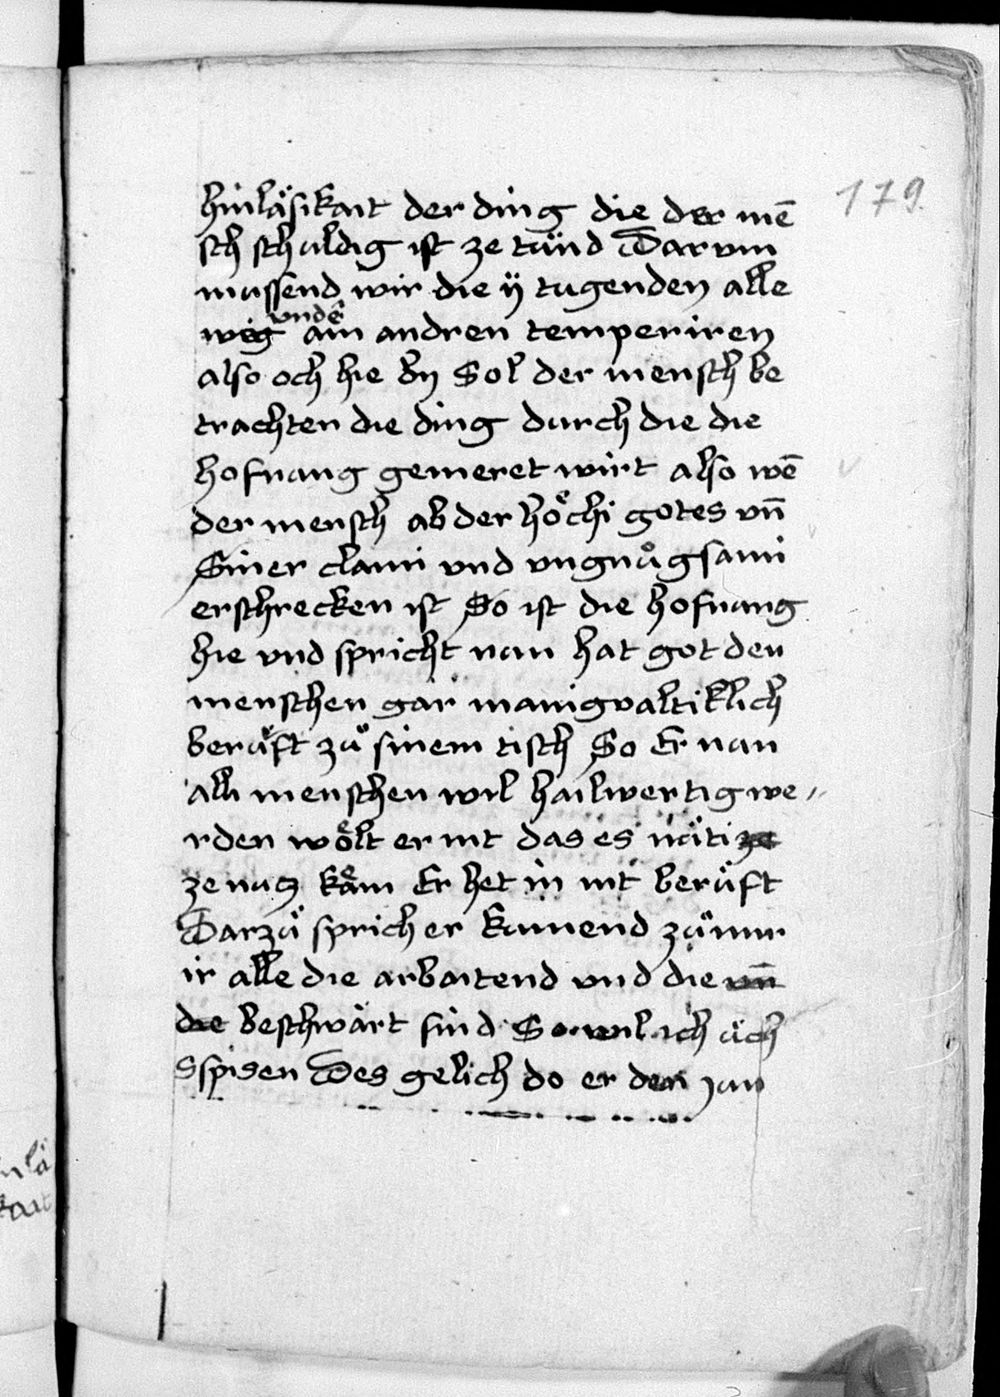 179.
hinläsikait der ding die der mē
sch schuldig ist ze tünd Darvmm
mussend wir die ij tugenden alle
weg vndē ain andren temperiren
also och hie by Sol der mensch be
trachten die ding durch die die
hofnung gemeret wirt also wē
der mensch ab der höchi gotes vn̄
Siner claini vnd vngnůgsami
erschrecken ist So ist die hofnung
hie vnd spricht nun hat got den
menschen gar manigvaltiklich
berüft zů sinem tisch So Er nun
alli menschen wil hailwertig we〃
rden wölt er nit das es näti ze
ze nucz käm Er het in nit berüft
Darzů sprich er kumend zů mir
ir alle die arbaitend vnd die vn̄
die beschwärt sind So wil ich üch
spisen Des gelich do er den jun
nlä
kait